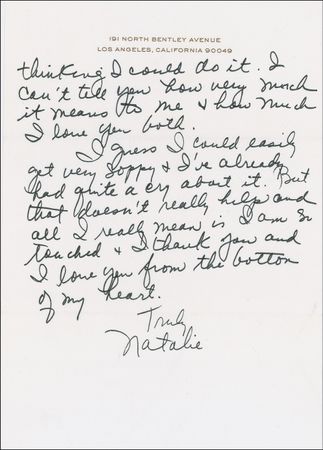 191 NORTH BENTLEY AVENUE
LOS ANGELES, CALIFORNIA 90049
thinking I could do it. I
can't tell you how very much
it means to me & how much
I love you both.
I guess I could easily
get very soppy & I've already
had quite a cry about it. But
that doesn't really help and
all I really mean is I am so
touched & I thank you and
I love you from the bottom
of my heart.
Truly
Natalie